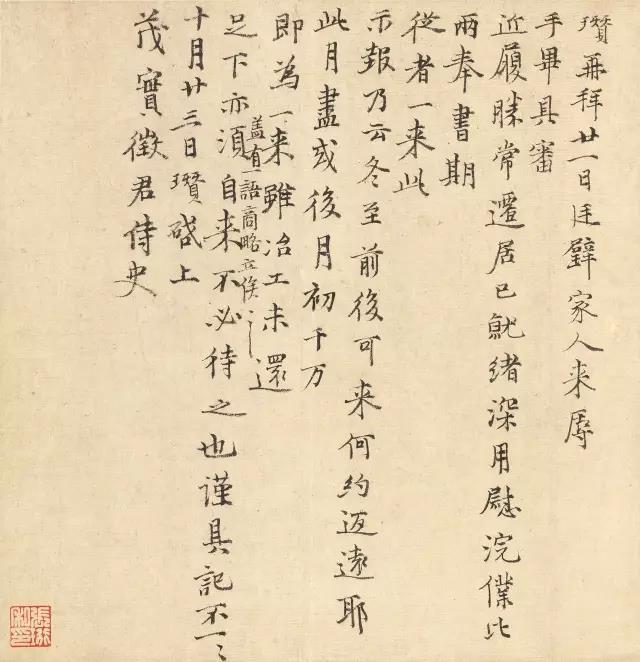 瓚再拜廿一日廷璧家人来辱
手畢具審
近履勝常遷居已就緒深用慰浣僕比
兩奉書期
從者一来此
示報乃云冬至前後可来何約迈遠耶
此月盡或後月初千万
即為一来雖冶工未還
盖有一語商略立俟之
足下亦須自来不必待之也謹具記不一〻
十月廿三日瓚啓上
茂實徵君侍史
張珩私印